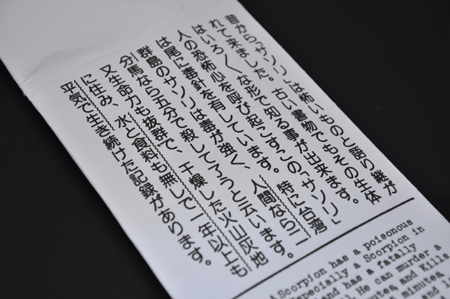 昔から"サソリ"は怖いものと語り継が
れて来ました。古い書物でもその生体
はいろ〱な形で知る事が出来ます。
人の恐怖心を呼び起こすこの"サソリ"
は尾に毒針を有しています。特に台湾
群島のサソリは毒が強く、人間なら一
分、馬なら五分で殺して了うと云います。
又生命力も抜群で、乾燥した火山灰地
に住み、水と食料も無しで一年以上も
平気で生き続けた記録があります。
Scorpion has a poisonous
specially a Scorpion in
and has a fatally
He can murder a
and Kills
minutes